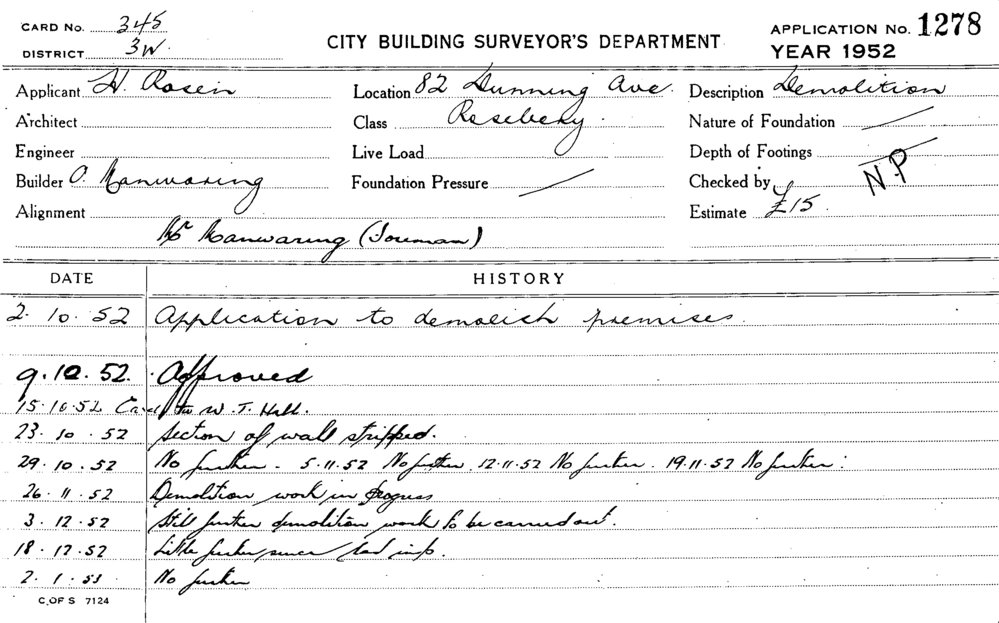 CARD No. 345
DISTRICT 3W.
CITY BUILDING SURVEYOR'S DEPARTMENT
APPLICATION No. 1278
YEAR 1952
Applicant H. Rosen Location 82 Dunning Ave Description Demolition
Architect Class Rosebery. Nature of Foundation
Engineer Live Load Depth of Footings
Builder O. Manwaring Foundation Pressure Checked by N.P
Alignment Estimate £15.
Mr Manwaring (Foreman)
DATE HISTORY
2. 10. 52 Application to demolish premises.
9. 10. 52. Approved
15. 10. 52 Card to W. T. Hall.
23. 10. 52 Section of wall stripped.
29. 10. 52 No further. 5.11.52 No further. 12.11.52 No further. 19.11.52 No further.
26. 11. 52 Demolition work in progress
3. 12. 52 Still further demolition work to be carried out.
18. 12. 52 Little further since last insp.
2. 1. 53 No further
C. OF S 7124